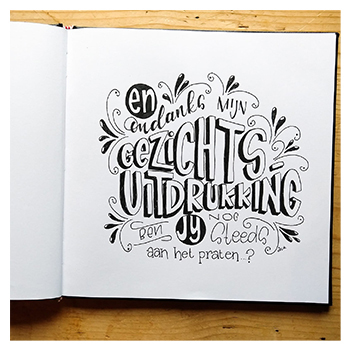 en
ondanks MIJN
GEZICHTS-
UITDRUKKING
BEN JY NOG Steeds
aan het praten..?